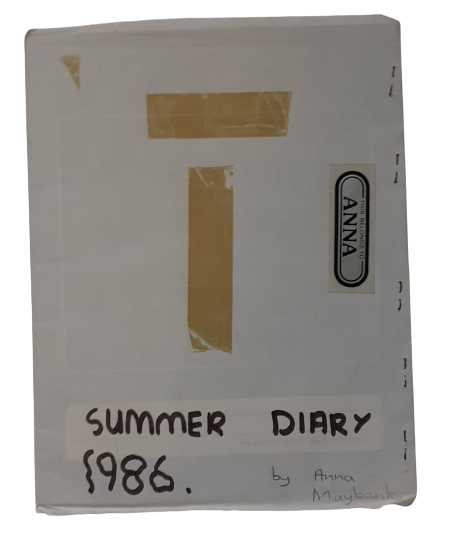 THIS BELONGS TO
ANNA
SUMMER DIARY
1986.
by Anna